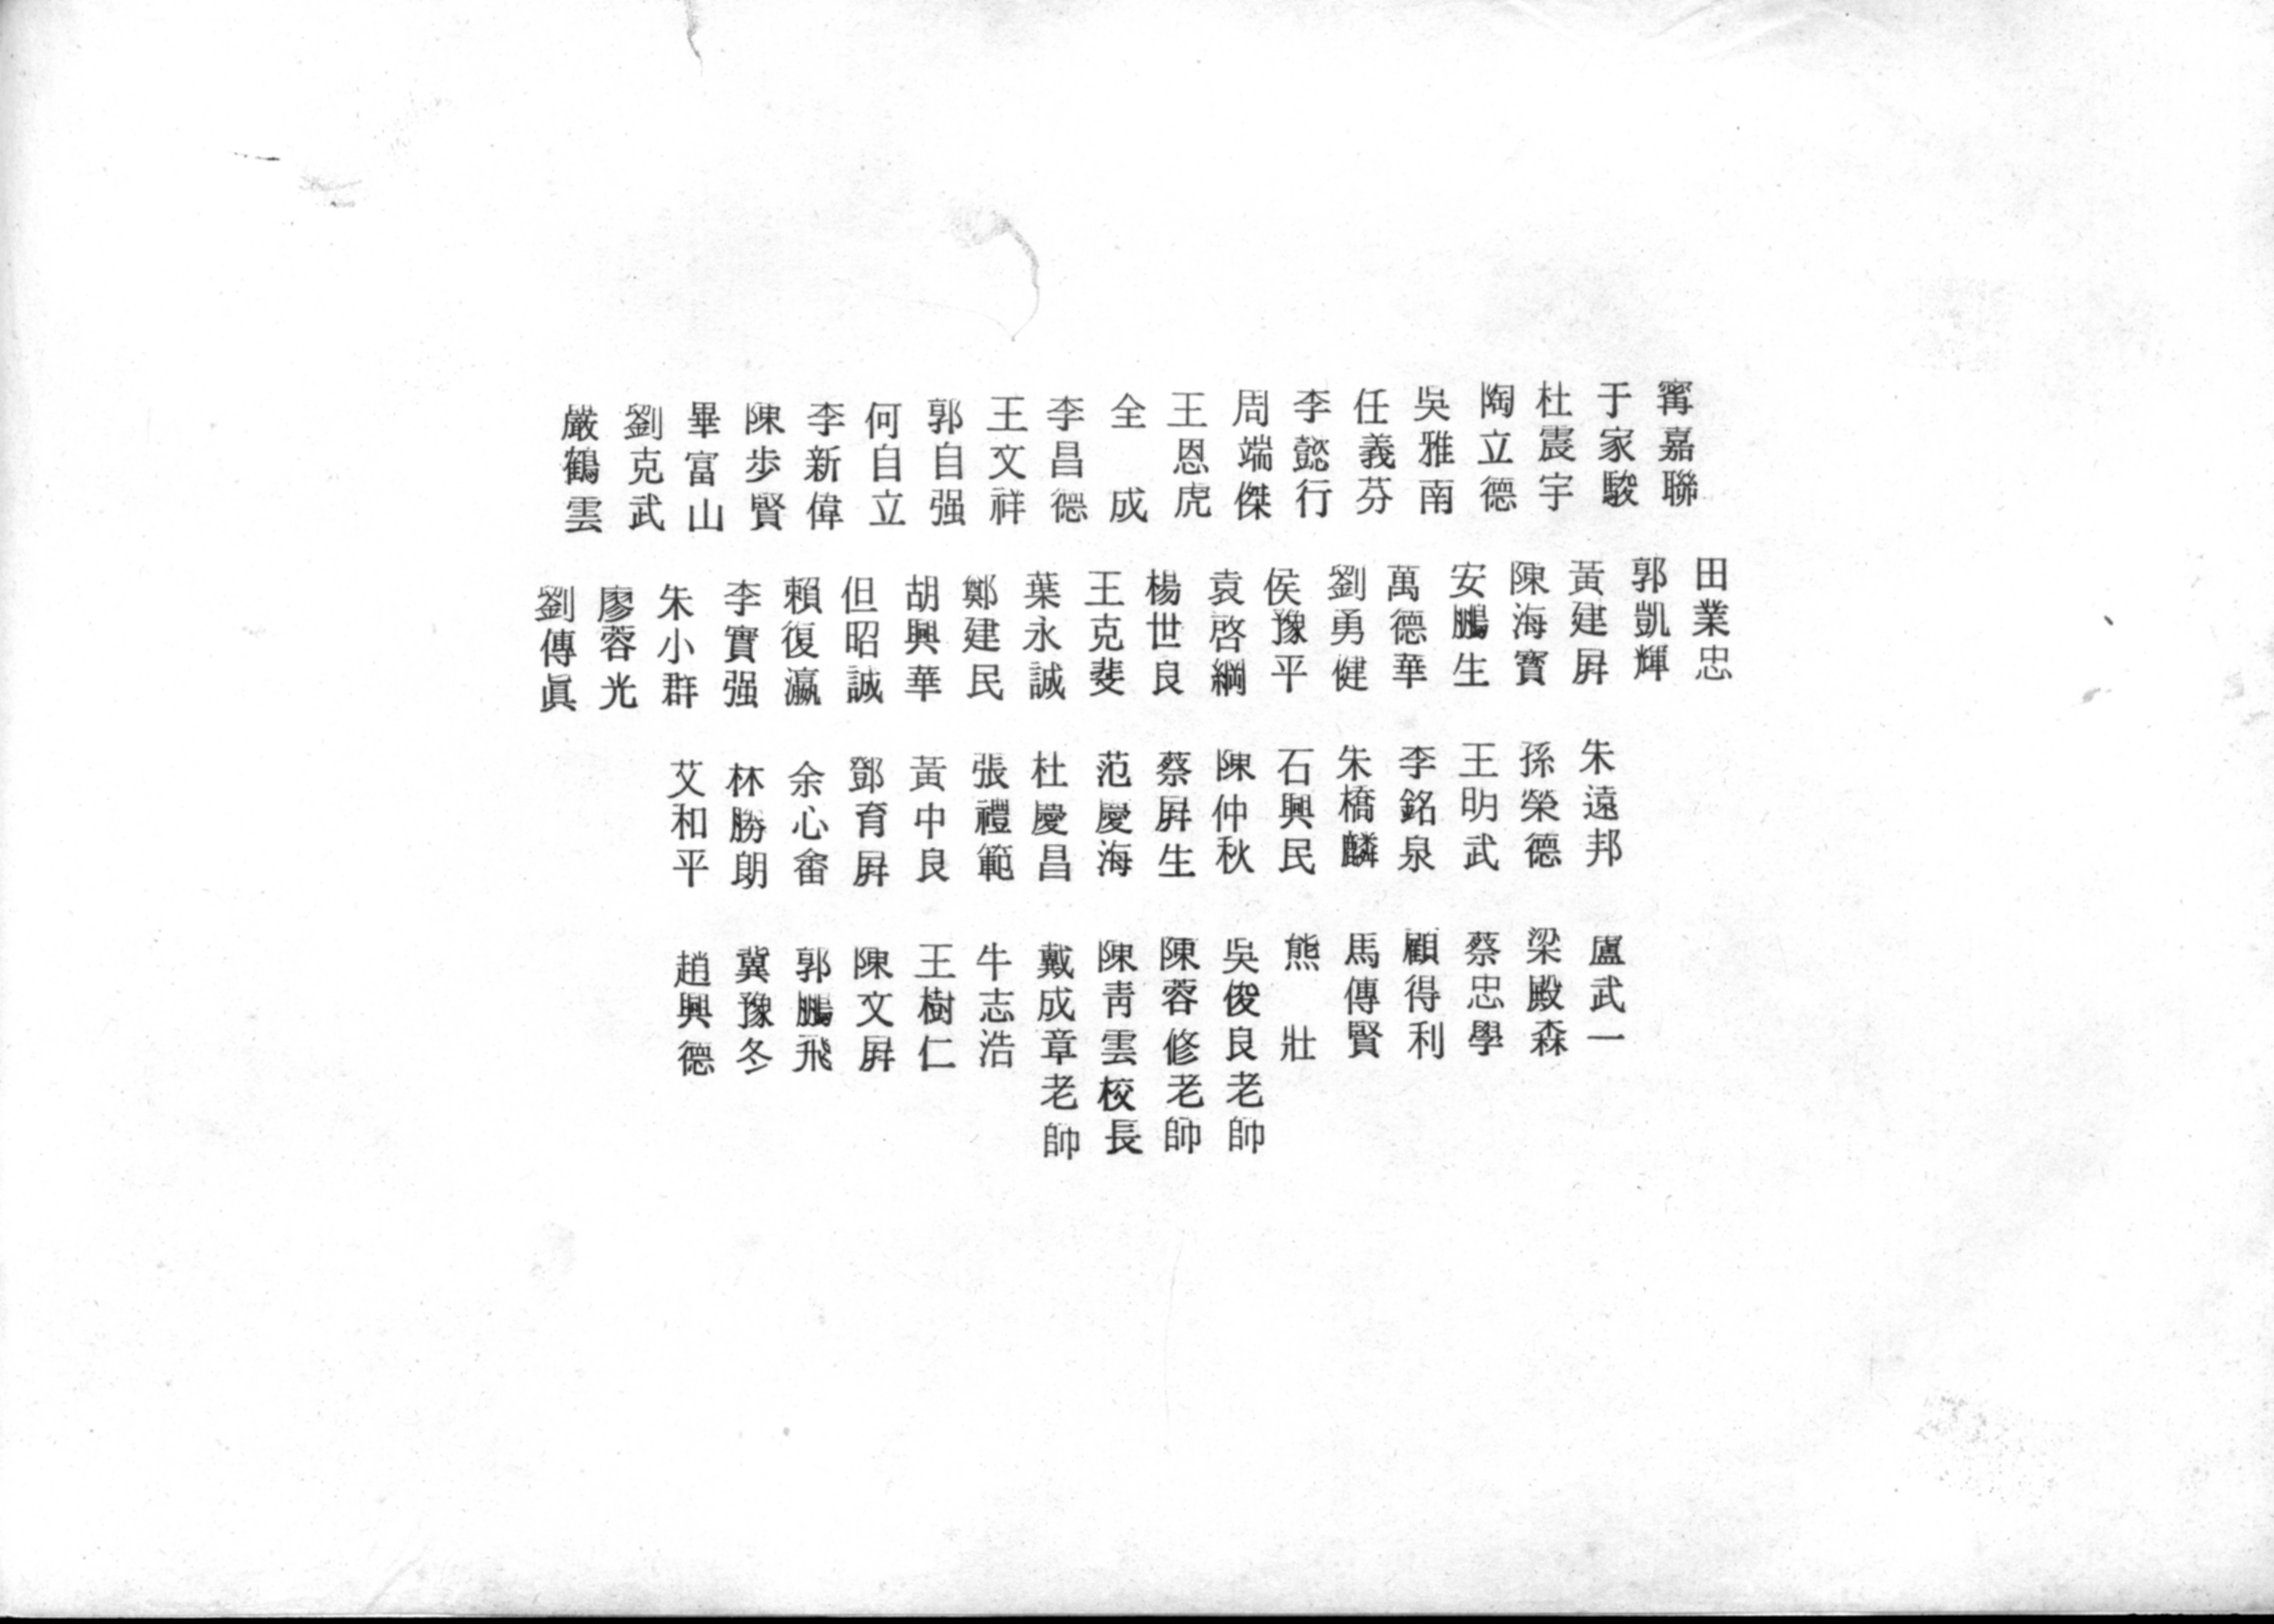 甯嘉聯
于家駿
杜震宇
陶立德
吳雅南
任義芬
李懿行
周端傑
王恩虎
全成
李昌德
王文祥
郭自强
何自立
李新偉
陳步賢
畢富山
劉克武
嚴鶴雲
田業忠
郭凱輝
黃建昇
陳海寶
安鵬生
萬德華
劉勇健
侯豫平
袁啓綱
楊世良
王克斐
葉永誠
鄭建民
胡興華
但昭誠
賴復瀛
李實强
朱小群
廖蓉光
劉傳眞
朱遠邦
孫榮德
王明武
李銘泉
朱橋麟
石興民
陳仲秋
蔡昇生
范慶海
杜慶昌
張禮範
黃中良
鄧育昇
余心畬
林勝朗
艾和平
盧武一
梁殿森
蔡忠學
顧得利
馬傳賢
熊壯
吳俊良老師
陳蓉修老師
陳靑雲校長
戴成章老師
牛志浩
王樹仁
陳文昇
郭鵬飛
冀豫冬
趙興德